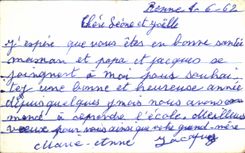 Rennes 1-6-62
Chère Léone et Joëlle
J'espère que vous êtes en bonne santé
maman et papa et jacques se
joingnent à moi pour souhai
ter une bonne et heureuse année
depuis quelques mois nous avons com
mencé à reprendre l'école Meilleurs
vœux pour vous ainsi que votre grand-mère
Marie-Anne Jacques